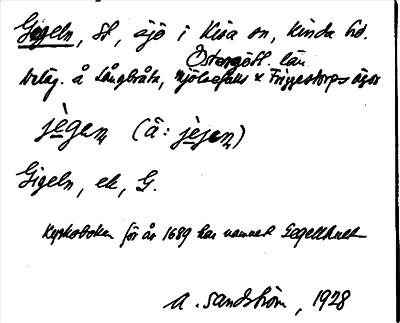 Gegeln, St, sjö i Kisa sn, Kinda hd.
Östergötl. län
belåg. å Långbråta, Mjölsefalls & Friggestorps ägor
jègeṇ (ä: jèjeṇ)
Gigeln, ek, G.
Kyrkoboken för år 1689 har namnet Gegellhult
A. Sandström, 1928